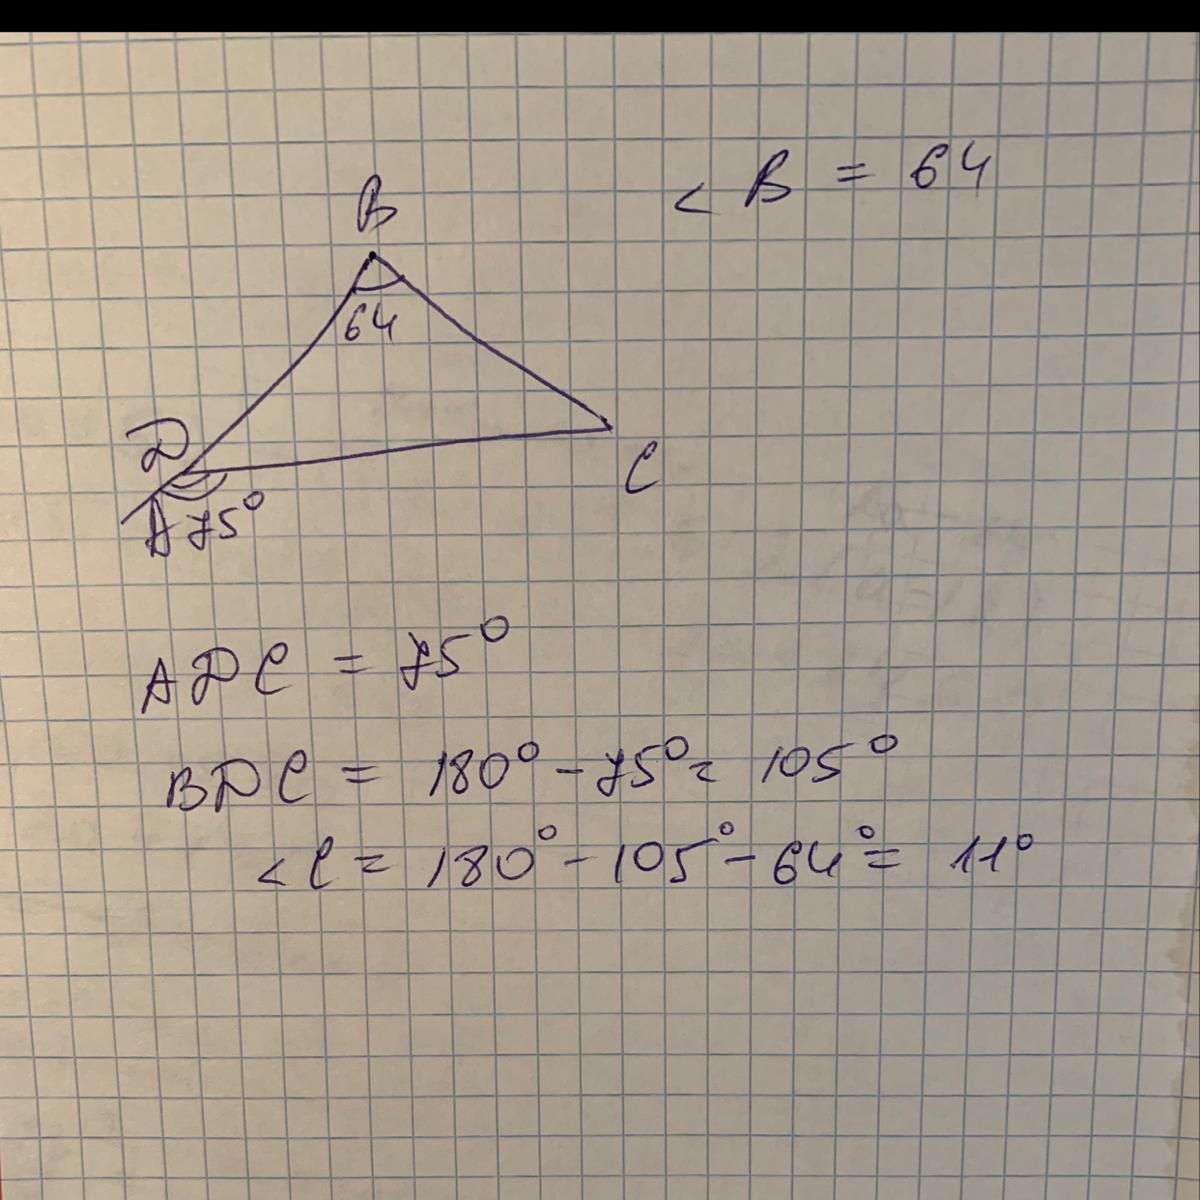 < B = 64
B
64
D
C
A 75°
ADC = 75°
BDC = 180° - 75° = 105°
< C = 180° - 105° - 64° = 11°